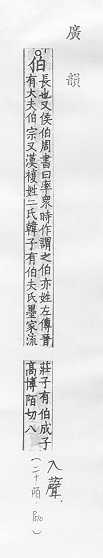 廣韻
伯
長也又侯伯周書曰率衆時作謂之伯亦姓左傳晉
有大夫伯宗又漢複姓二氏韓子有伯夫氏墨家流
莊子有伯成子
高博陌切八
入聲
(二十陌, P510)